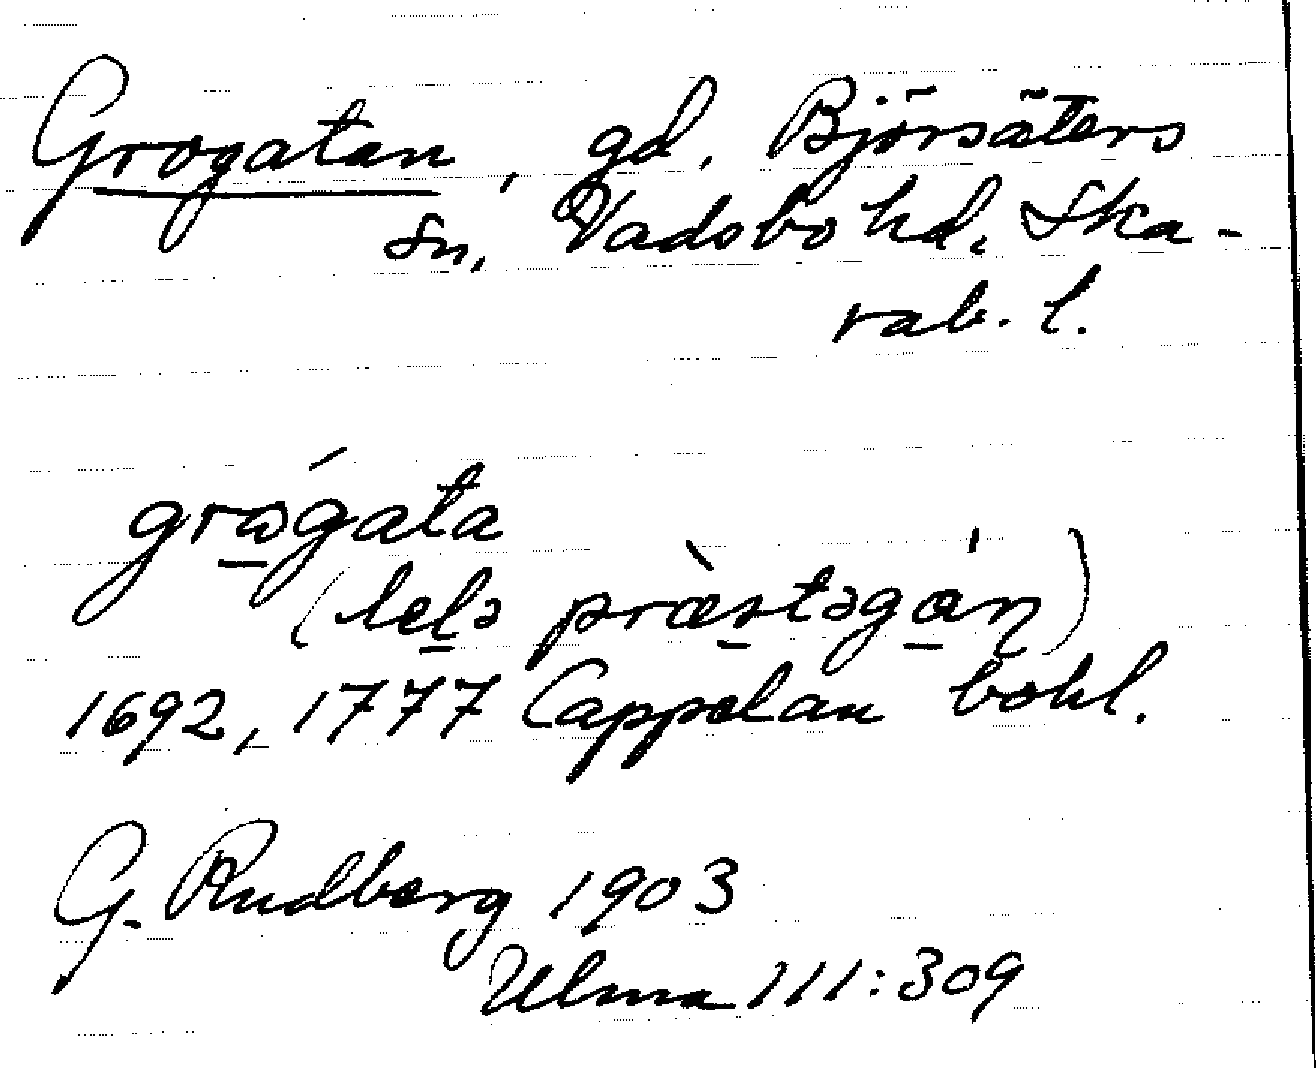 Grogatan, gd, Björsäters
sn, Vadsbo hd, Ska-
rab. l.
grogata
(lelə præstəgan)
1692, 1777 Cappelan bohl.
G. Rudberg 1903
Ulma 111:309